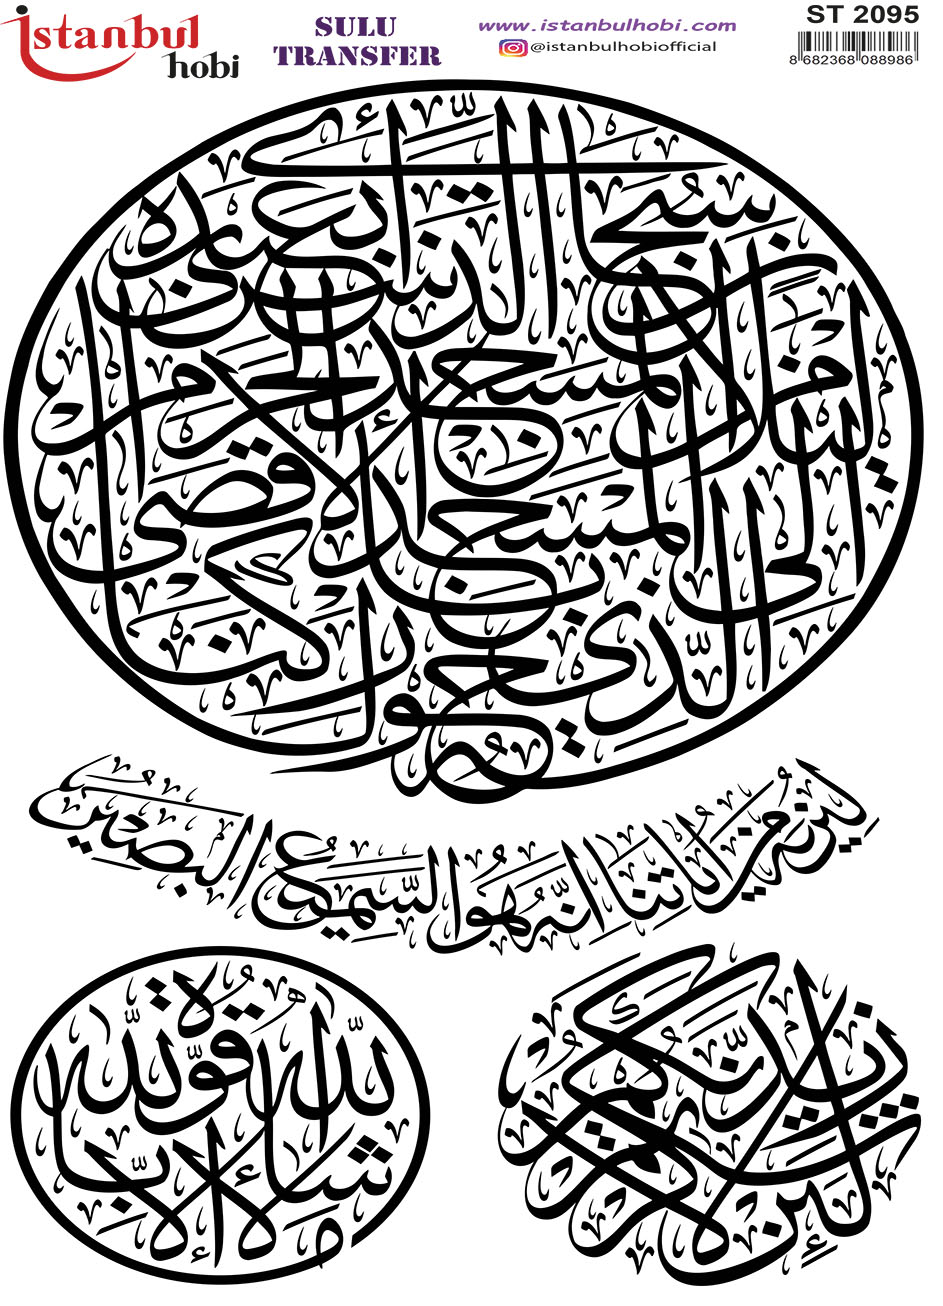 istanbul hobi
SULU TRANSFER
www.istanbulhobi.com
@istanbulhobiofficial
ST 2095
8 682368 088986
سبحان الذي أسرى بعبده
ليلا من المسجد الحرام
إلى المسجد الأقصى
الذي باركنا حوله
لنريه من آياتنا إنه هو السميع البصير
ما شاء الله لا قوة إلا بالله
لئن شكرتم لأزيدنكم